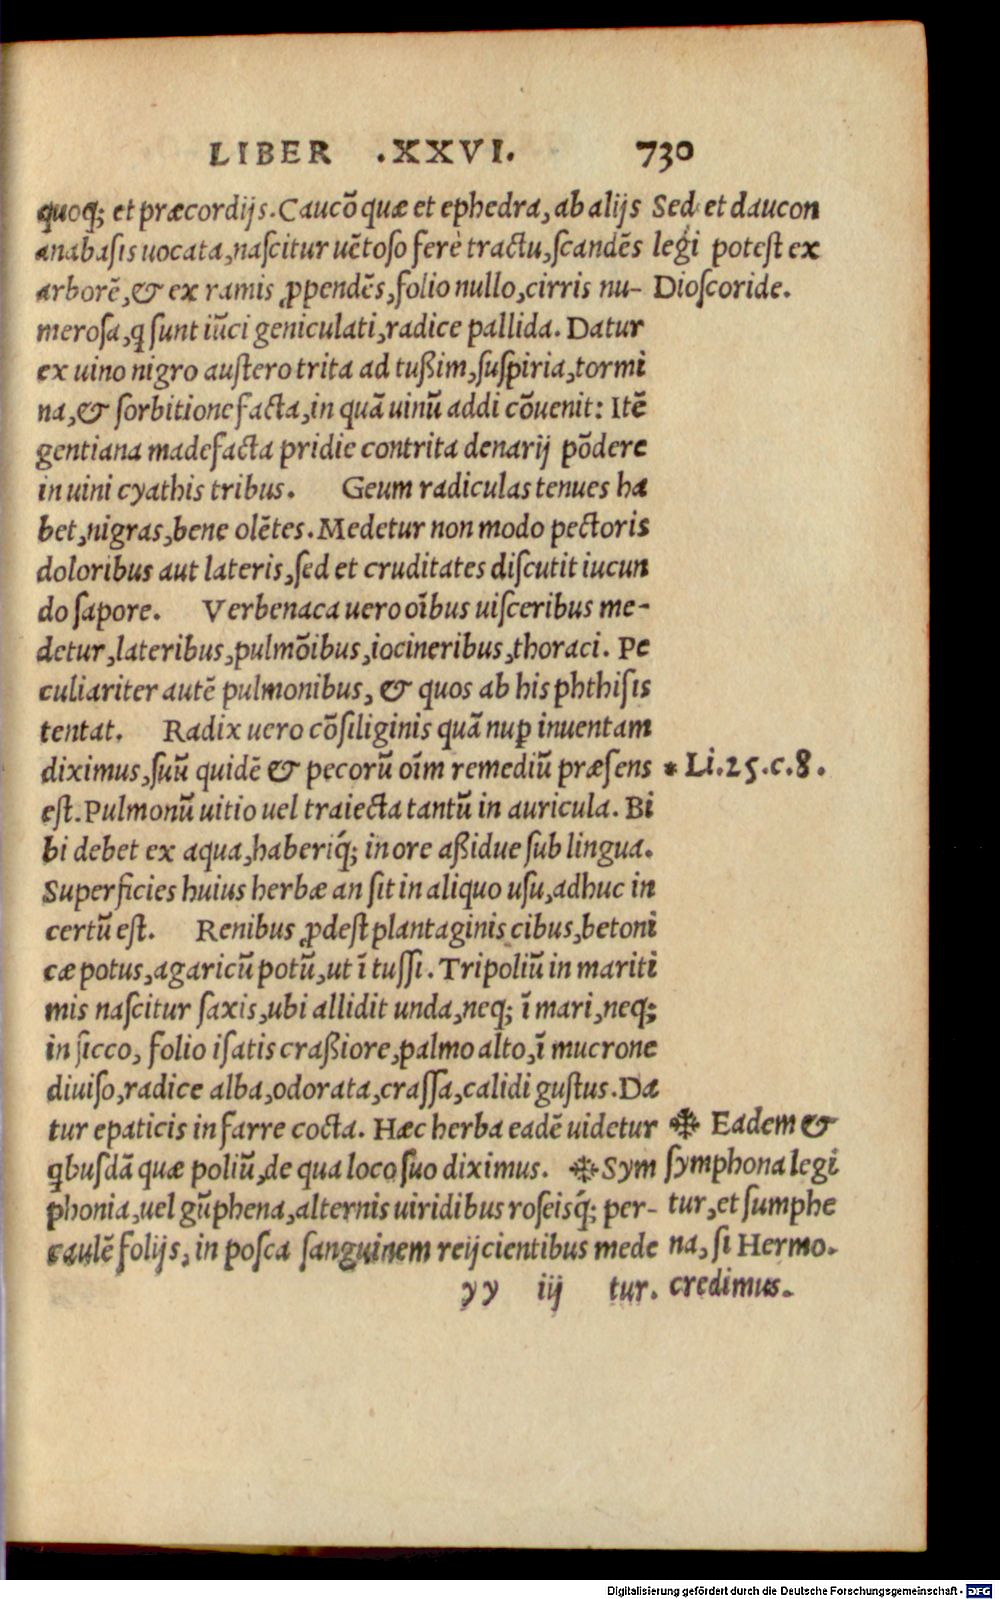 LIBER .XXVI. 730
quoq; et præcordijs. Caucō quæ et ephedra, ab alijs
anabasis uocata, nascitur uētoso ferè tractu, scandēs
arborē, & ex ramis ꝓpendēs, folio nullo, cirris nu-
merosa, q̄ sunt iūci geniculati, radice pallida. Datur
ex uino nigro austero trita ad tußim, suspiria, tormi
na, & sorbitione facta, in quā uinū addi cōuenit: Itē
gentiana madefacta pridie contrita denarij pōdere
in uini cyathis tribus. Geum radiculas tenues ha
bet, nigras, bene olētes. Medetur non modo pectoris
doloribus aut lateris, sed et cruditates discutit iucun
do sapore. Verbenaca uero oībus uisceribus me-
detur, lateribus, pulmōibus, iocineribus, thoraci. Pe
culiariter autē pulmonibus, & quos ab his phthisis
tentat. Radix uero cōsiliginis quā nuꝑ inuentam
diximus, suū quidē & pecorū oīm remediū præsens
est. Pulmonū uitio uel traiecta tantū in auricula. Bi
bi debet ex aqua, haberiq́; in ore aßidue sub lingua.
Superficies huius herbæ an sit in aliquo usu, adhuc in
certū est. Renibus ꝓdest plantaginis cibus, betoni
cæ potus, agaricū potū, ut ī tussi. Tripoliū in mariti
mis nascitur saxis, ubi allidit unda, neq; ī mari, neq;
in sicco, folio isatis craßiore, palmo alto, ī mucrone
diuiso, radice alba, odorata, crassa, calidi gustus. Da
tur epaticis in farre cocta. Hæc herba eadē uidetur
q̄busdā quæ poliū, de qua loco suo diximus. ❉ Sym
phonia, uel gūphena, alternis uiridibus roseisq́; per-
caulē folijs, in posca sanguinem reijcientibus mede
yy iij tur.
Sed et daucon
legi potest ex
Dioscoride.
* Li.25.c.8.
❉ Eadem &
symphona legi
tur, et sumphe
na, si Hermo.
credimus.
Digitalisierung gefördert durch die Deutsche Forschungsgemeinschaft - DFG